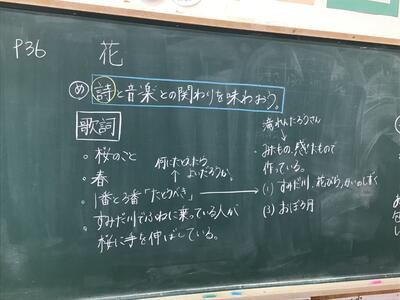 P36 花
め 詩と音楽との関わりを味わおう。
歌詞
・桜のこと
・春
何にたとえたら
よいだろうか。
・1番と3番「たとうべき」
・すみだ川でふねに乗っている人が
桜に手を伸ばしている。
滝れんたろうさん
・みたもの、感じたもので
作っている。
(1) すみだ川、花びら、かいのしずく
(3) おぼろ月